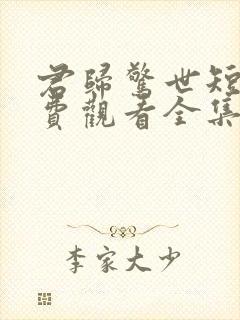 君歸驚世短
費觀看全集
李家大少